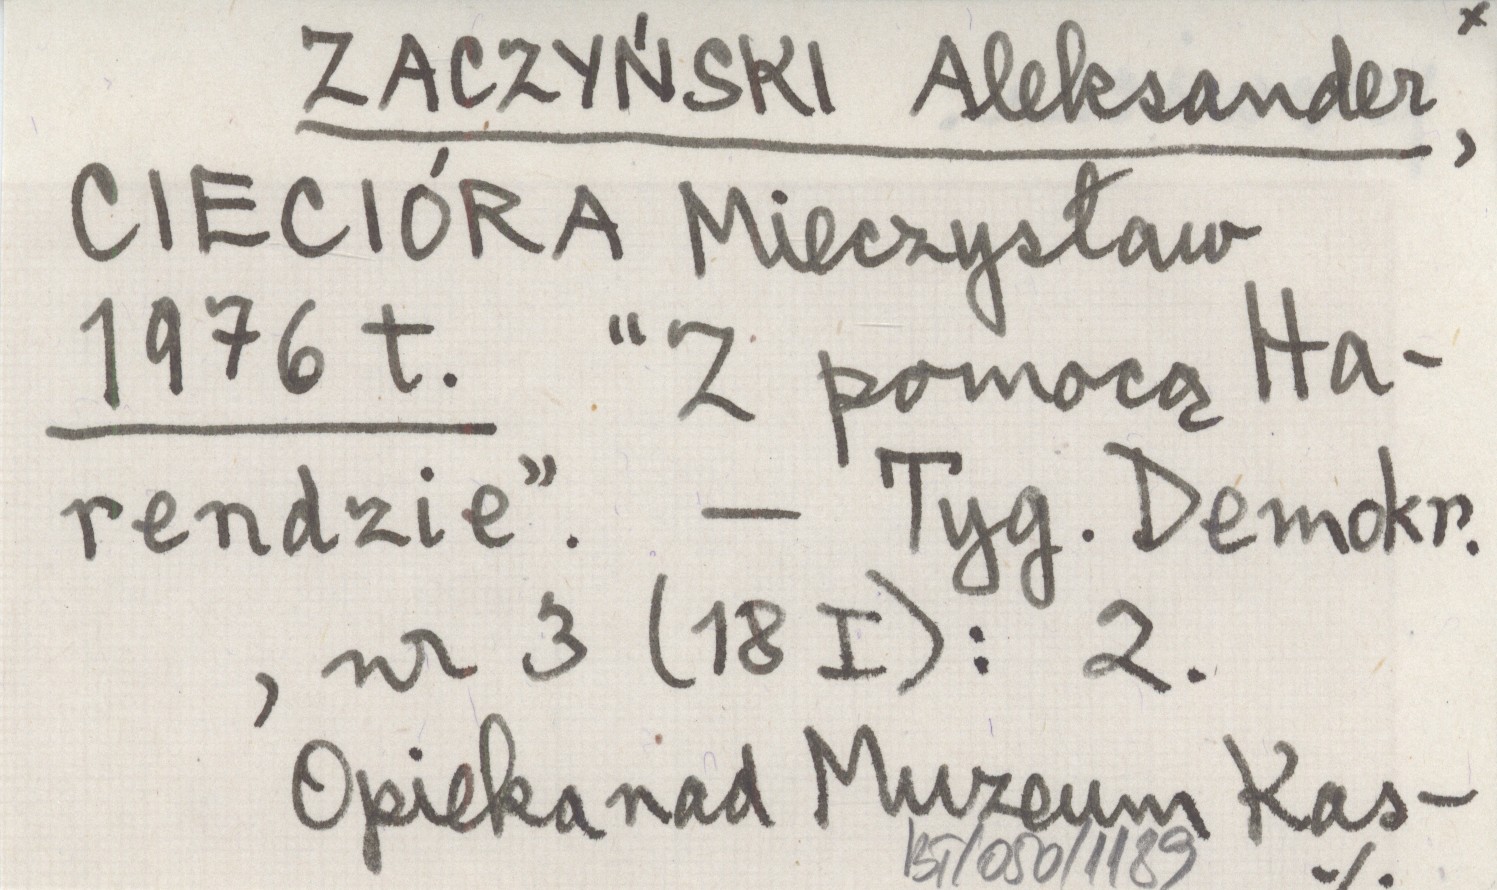 x
ZACZYŃSKI Aleksander,
CIECIÓRA Mieczysław
1976 t. "Z pomocą Ha-
rendzie". — Tyg. Demokr.
, nr 3 (18 I): 2.
Opieka nad Muzeum Kas-
BT/050/1189
./.